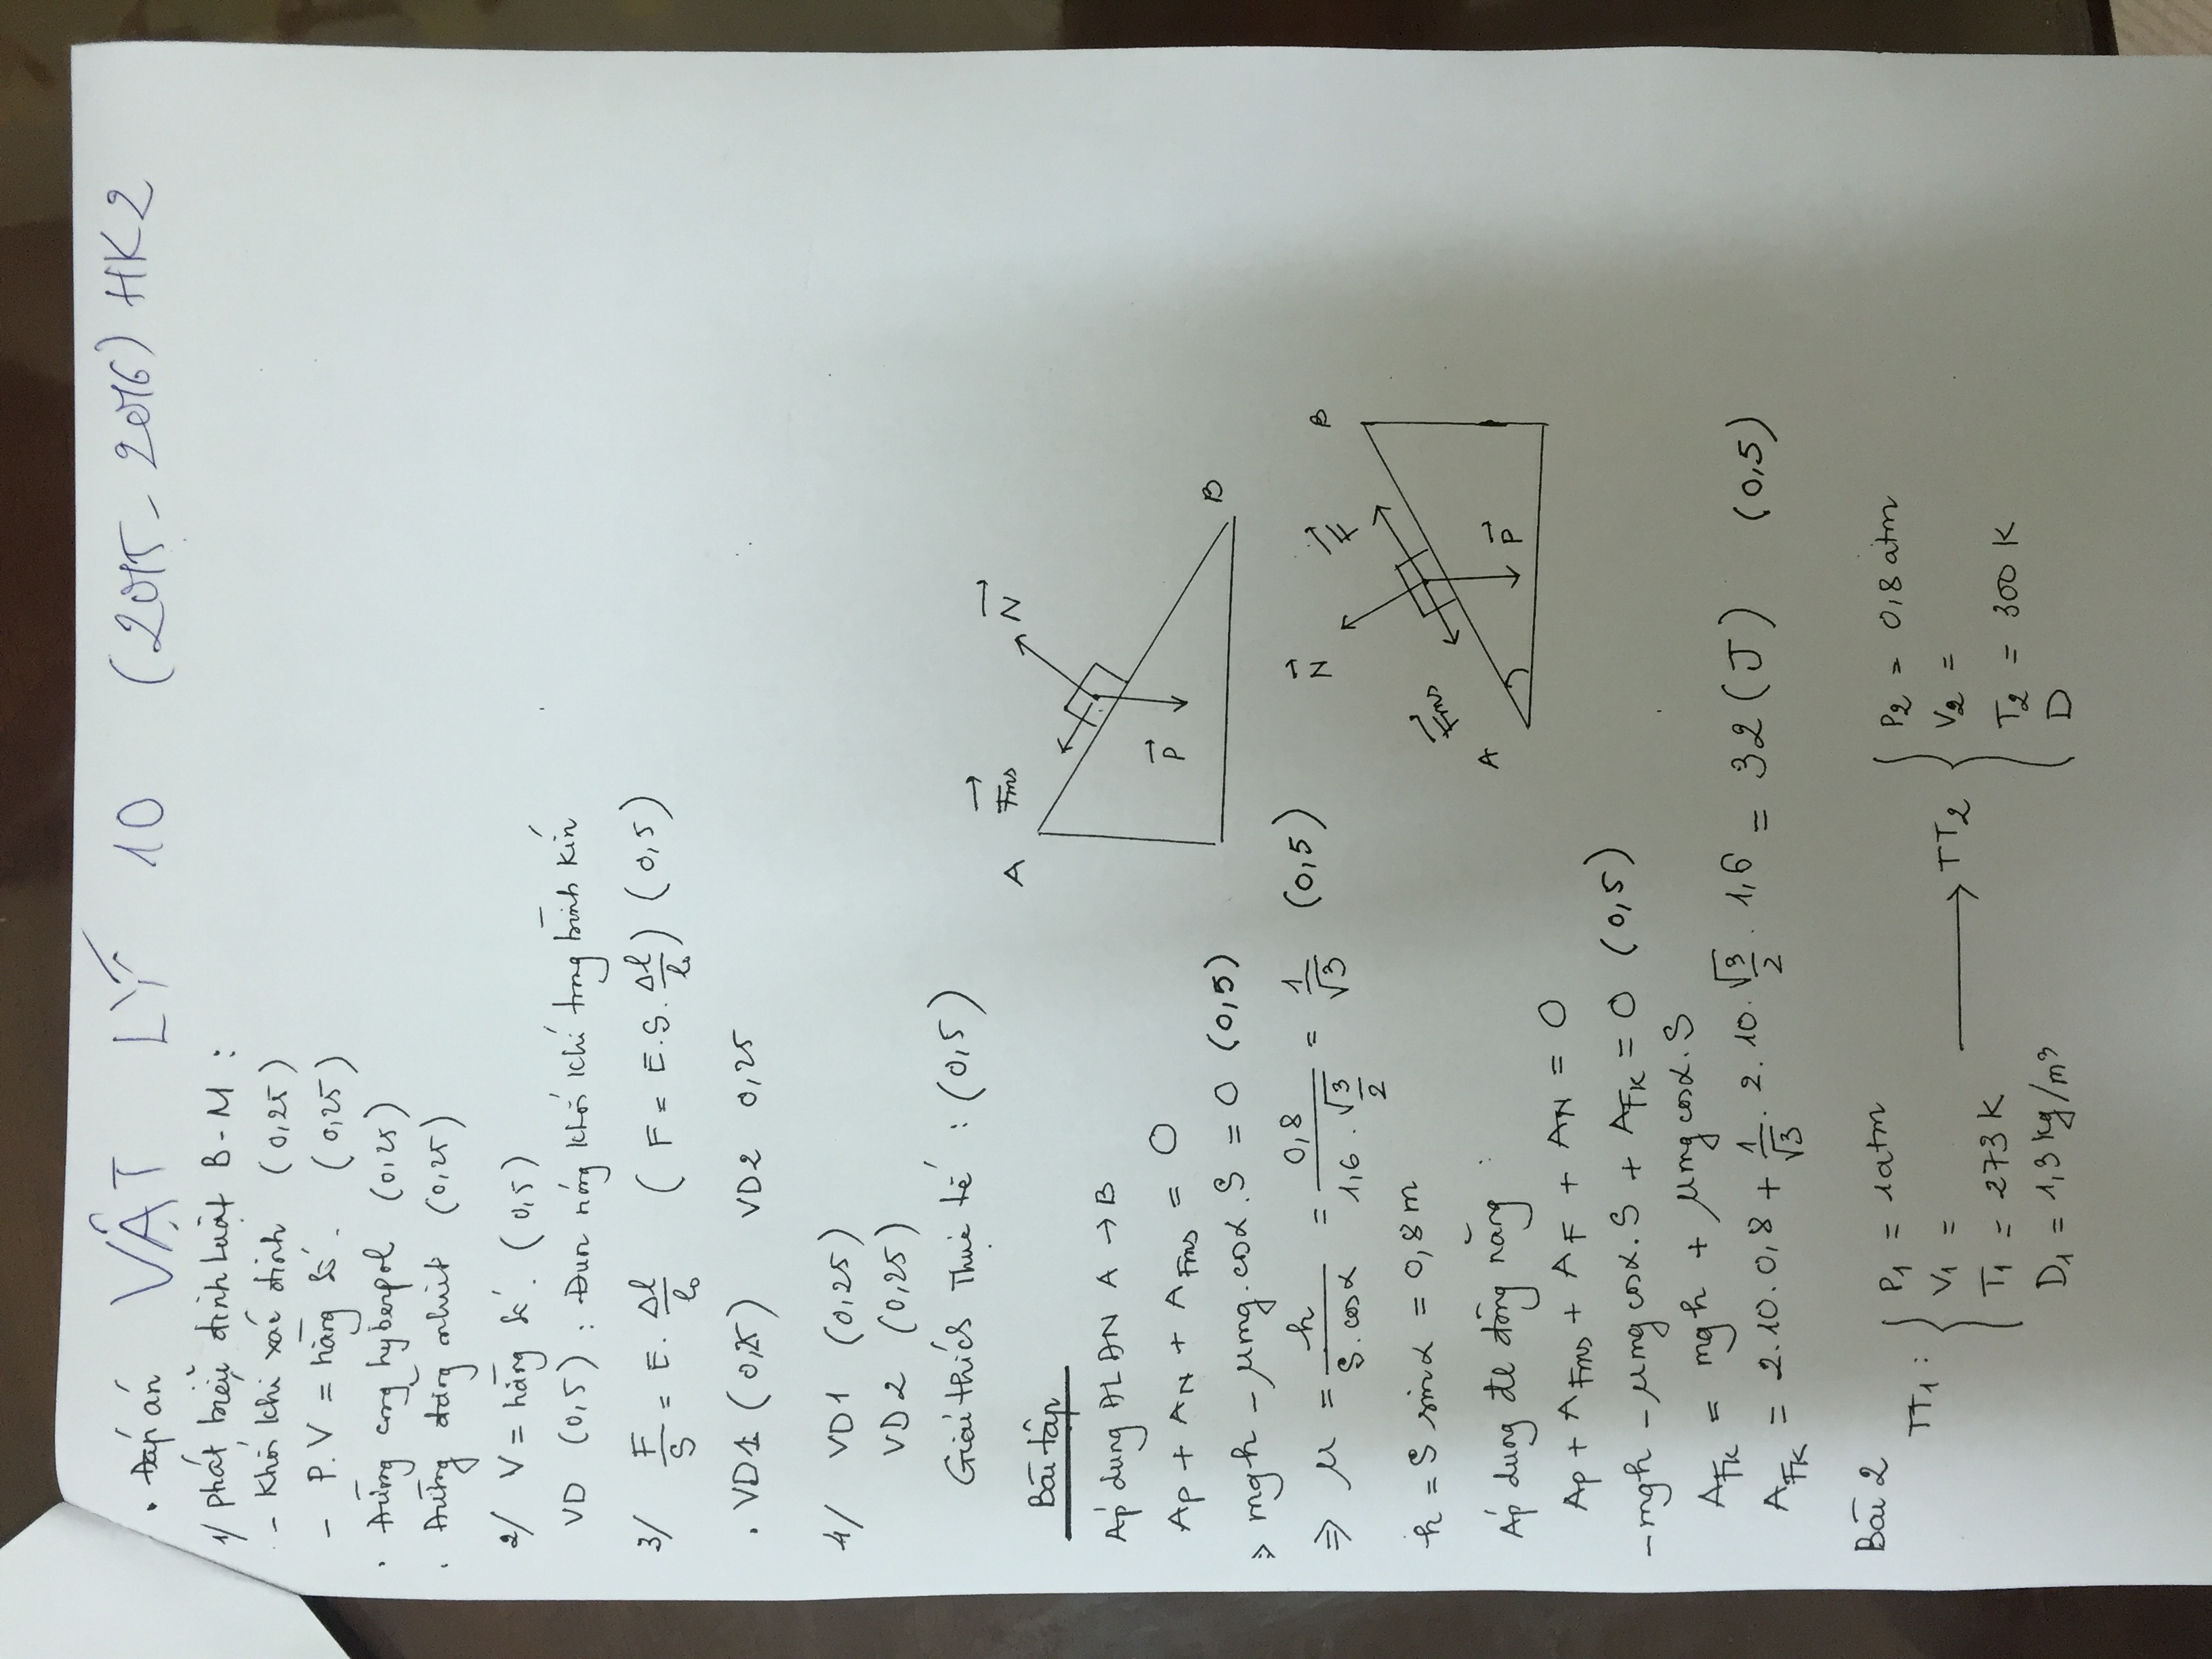 VẬT LÝ 10 (2015-2016) HK2
• Đáp án
1/ phát biểu định luật B-M :
- Khối khí xác định (0,25)
- P.V = hằng số. (0,25)
• Đường cong hyberpol (0,25)
• Đường đẳng nhiệt (0,25)
2/ V = hằng số. (0,5)
VD (0,5) : Đun nóng khối khí trong bình kín
3/ F/S = E. Δl/l₀ (F = E.S. Δl/l₀) (0,5)
• VD1 (0,25) VD2 0,25
4/ VD1 (0,25)
VD2 (0,25)
Giải thích thực tế : (0,5)
Bài tập
Áp dụng ĐLĐN A → B
A_P + A_N + A_Fms = 0
⇒ mgh - μmg.cosα.S = 0 (0,5)
⇒ μ = h/(S.cosα) = 0,8/(1,6.√3/2) = 1/√3 (0,5)
h = S sinα = 0,8m
A
B
N
Fms
P
Áp dụng đl động năng :
A_P + A_Fms + A_F + A_N = 0
-mgh - μmgcosα.S + A_FK = 0 (0,5)
A_FK = mgh + μmgcosα.S
A_FK = 2.10.0,8 + 1/√3.2.10.√3/2.1,6 = 32(J) (0,5)
A
B
N
F
Fms
P
Bài 2
TT1 : { P₁ = 1atm → TT2 { P₂ = 0,8atm
V₁ = V₂ =
T₁ = 273K T₂ = 300K
D₁ = 1,3kg/m³ D